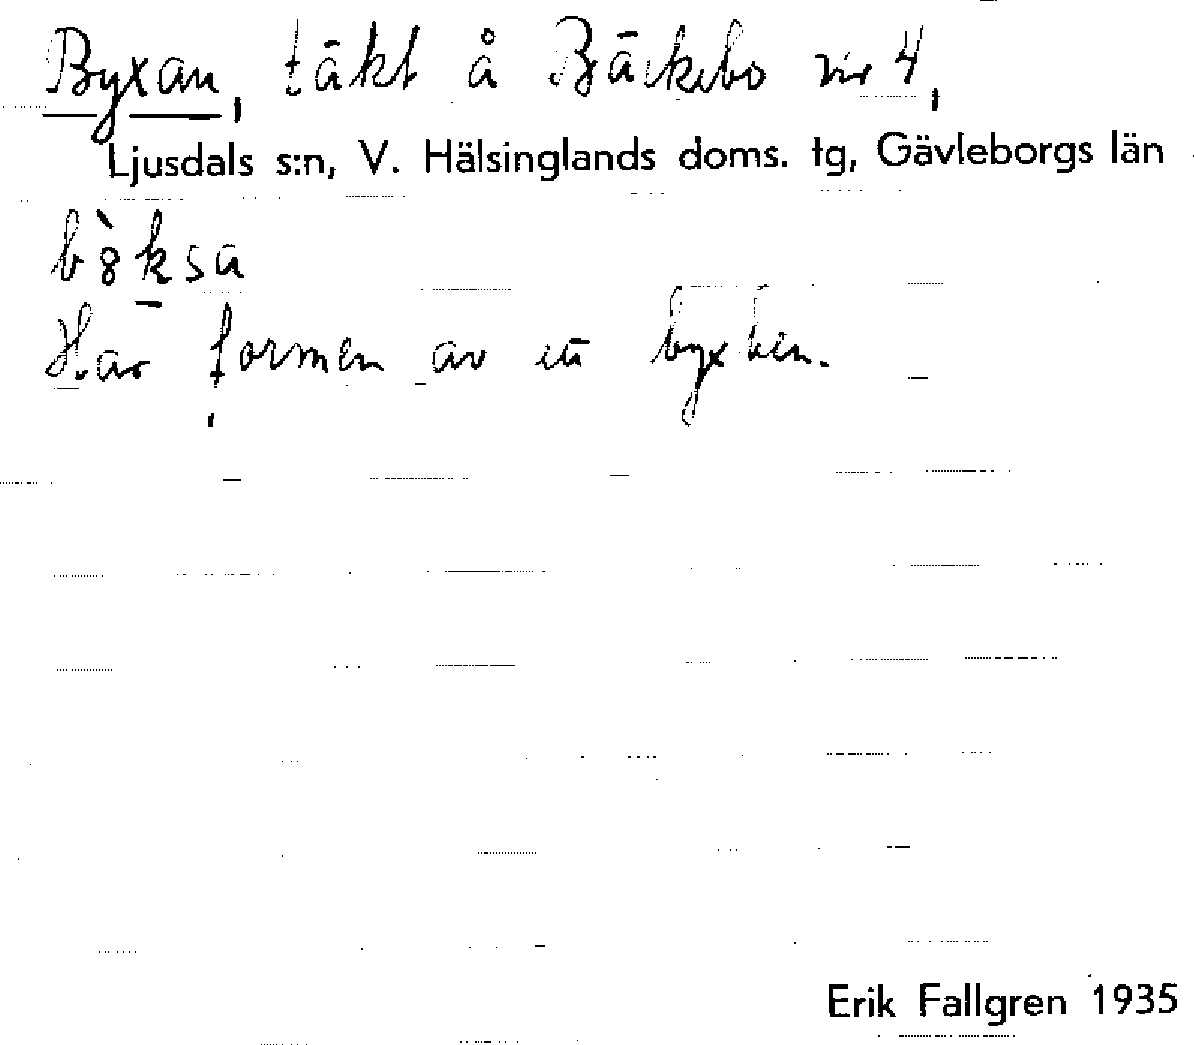 Byxan, täkt å Bäckebo nr 4,
Ljusdals s:n, V. Hälsinglands doms. tg, Gävleborgs län
b8̀ksa
Har formen av ett byxben.
Erik Fallgren 1935